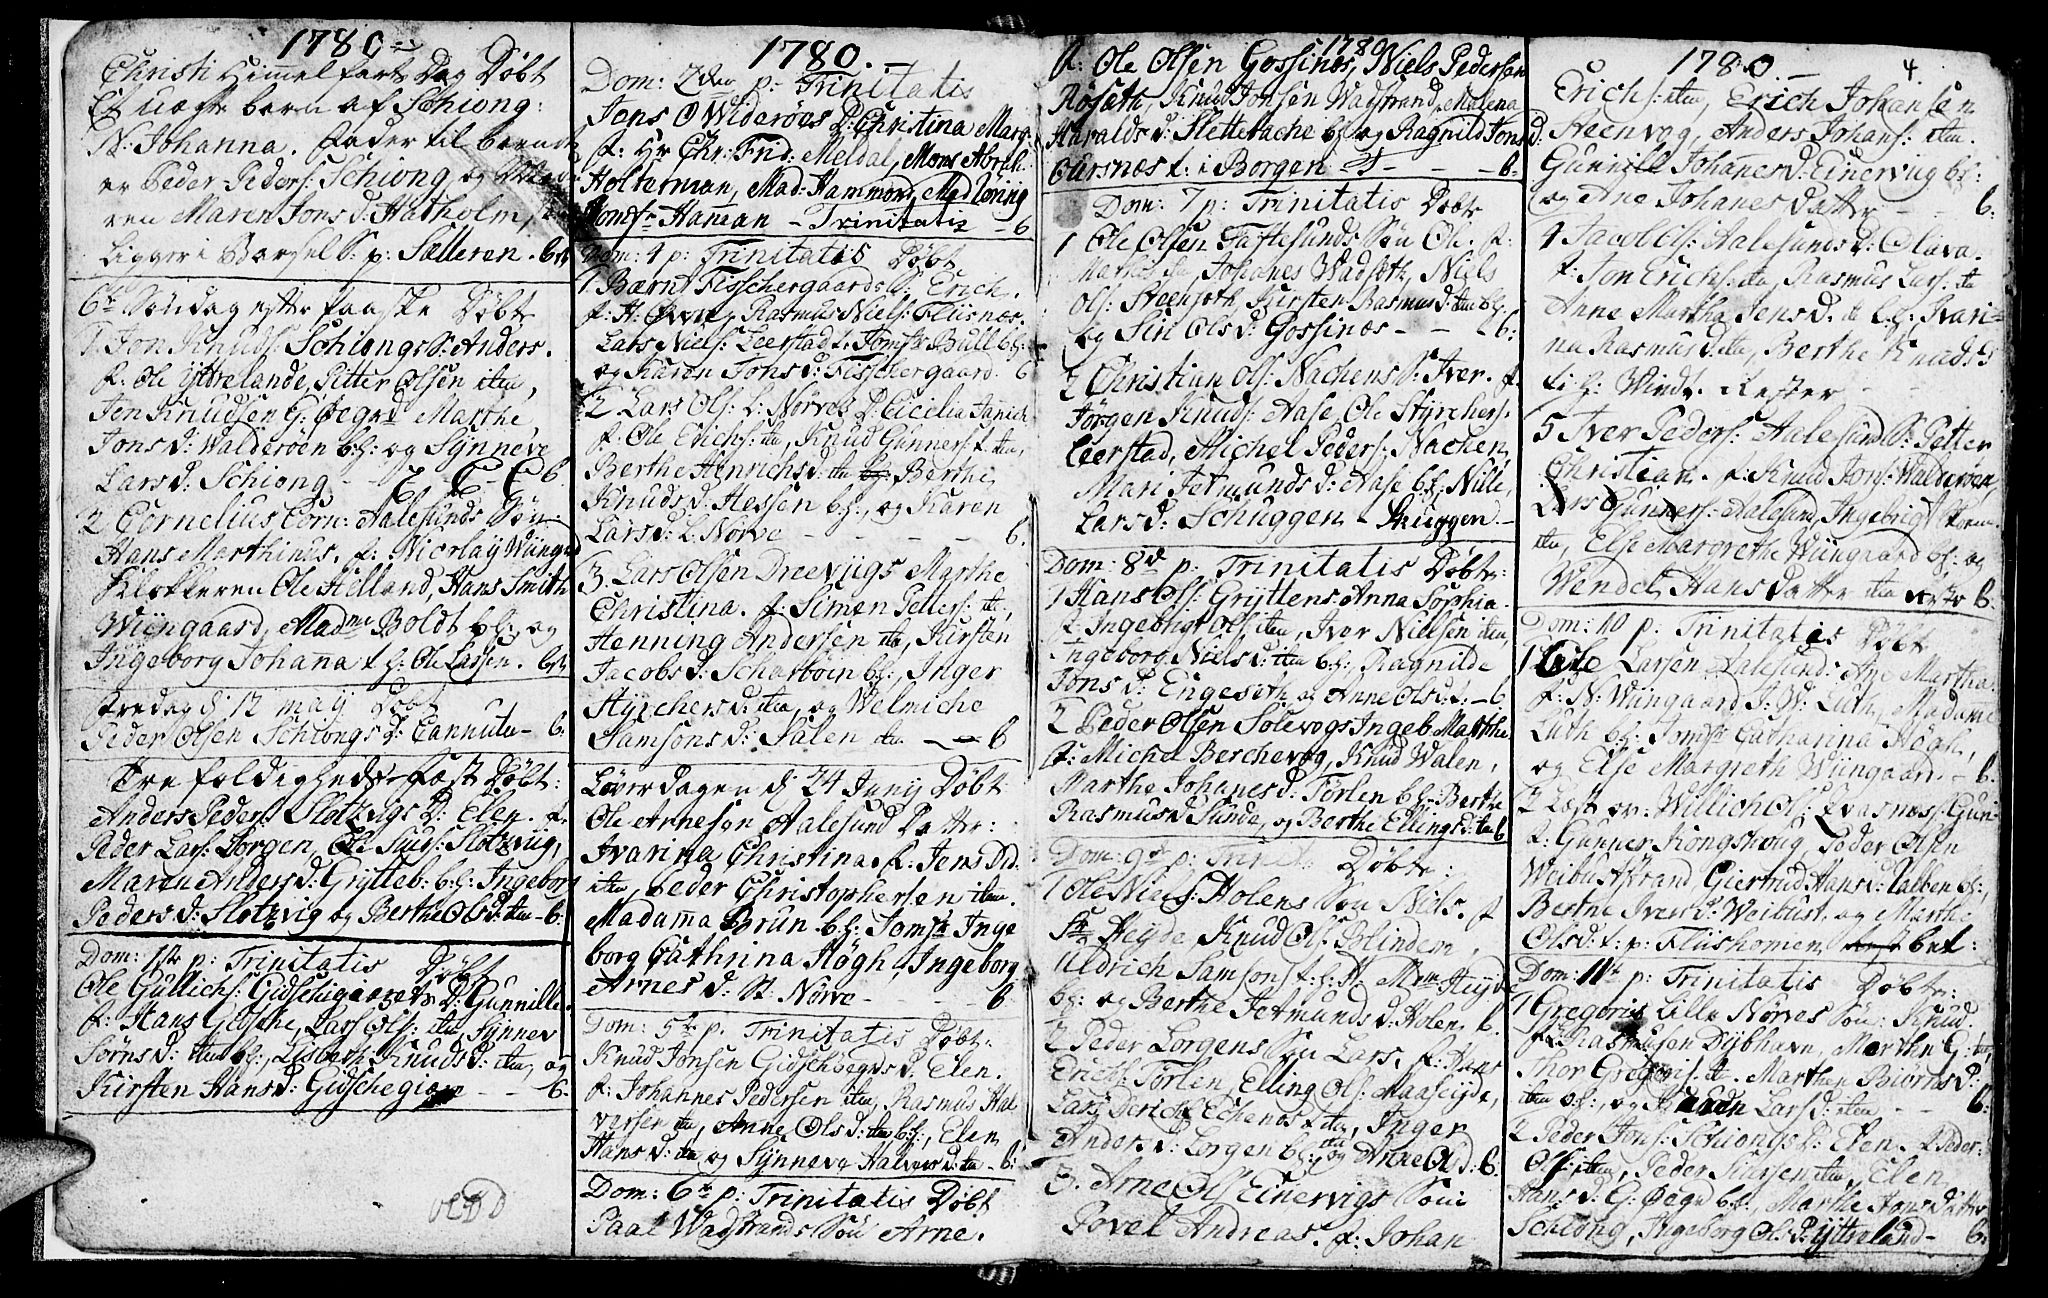 1780
Christi Himmelfarts Dag Døbt
Et uægte barn af Schiong:
N: Johanna. Fader til barnet
er Peder Peders: Schiong og Mode-
ren Maren Jons d: Hatholm,
ligger i Barsel S: p: Sælleren. b
6te Søndag efter Paaske Døbt
1 Jon Knuds: Schiongs S: Anders.
f: Ole Yttrelande, Pitter Olsen iten,
Jen Knudsen G: Øegrd Marthe
Jons d: Walderøen bf: og Synneve
Lars d: Schiong b.
2 Cornelius Corn: Aalesunds Søn:
Hans Marthinus. f: Nicolay Wiingrd
Klokkeren Ole Helland, Hans Smith
Wiingaard, Madme Boldt bf: og
Ingeborg Johanna f f: Ole Larsen. b
Fredag d 12 may Døbt
Peder Olsen Schiongs d: Cannuta - b.
Trefoldigheds Fæst Døbt:
Anders Peders: Slotzvigs D: Elen. f.
Peder Lars: Borgen, Ole Siurs: Slotzviig,
Maren Anders d: Grytteb: b:f: Ingeborg
Peders d: Slotzvig og Berthe Ols d: iten - b.
Dom: 1te p: Trinitatis Døbt
Ole Gullichs: Gidschegierrets D: Gunnille.
f: Hans Gidsche, Lars Ols: iten Synnev
Sørns d: iten bf:, Lisbeth Knuds d: iten, og
Kirsten Hans d: Gidschegierr - - b.
1780.
Dom: 2den p: Trinitatis
Jons O Widerøes D: Christina Marg
f: Hr Chr: Frid: Meldal, Mons Abrah:
Holterman, Mad: Hammond, Mad Coning
Jomfr Hannan - Trinitatis - 6
Dom: 4 p: Trinitatis Døbt
1 Bærnt Fisschergaards S: Erich.
f: H: Øvrey Rasmus Niels: Fliisnæs.
Lars Niels: Leerstad. Jomfr Bull bf:
og Karen Johs d: Fisschergaard. 6
2 Lars Ols: L: Nørves D: Cecilia Janich
f: Ole Erichs: iten, Knud Gunners: f iten,
Berthe Henrichs d: iten Berthe
Knuds d: Hessen bf:, og Karen
Lars d: L: Nørve - - - - 6.
3. Lars Olsen Dreeviigs Marthe
Christina. f: Simen Petters: iten,
Henning Andersen iten, Kirsten
Jacobs d: Scharbøen bf:, Inger
Styrchers d: iten, og Welmiche
Samsons d: Salen iten - 6
Løverdagen d 24 Junij Døbt
Ole Arnesøn Aalesund Datter:
Ivarina Christina. f: Jens Did:
iten, Peder Christophersen iten.
Madama Brun bf: Jomfr Inge
borg Cathrina Høgh, Ingeborg
Arnes d: St: Nørve - - 6
Dom: 5te p. Trinitatis Døbt:
Knud Jonsen Gidschøegrds d: Elen.
f: Johannes Pedersen iten, Rasmus Hal-
versen iten, Anne Ols d: iten b:f:, Elen
Hans d: iten og Synneve Halvors d: iten - b:
Dom: 6te p: Trinitatis Døbt
Paal Wadstrands Søn Arne.
1780
f: Ole Olsen Gossinæs, Niels Pedersen
Røsæth, Knud Jonsen Wadstrand, Malena
Haralds d: Slettebache bf: og Ragnild Jons d:
Ølersnæs f: i Borgen - - - b.
Dom: 7 p: Trinitatis Døbt
1 Ole Olsen Taftesunds Søn Ole. f:
Johanes Wadsæth, Niels
Ols: Steensæth Kirsten Rasmus d: iten bf:
og Siri Ols d: Gossinæs - - b:
2 Christian Ols: Nachens S: Iver. f.
Jørgen Knuds: Aase, Ole Styrchers:
Leerstad, Michel Peders: Nachen,
Mari Jetmunds d: Aase bf: Nille,
Lars d: Schuggen - Skuggen -
Dom: 8de p: Trinitatis Døbt:
1 Hans Ols: Gryttens Anna Sophia.
f: Ingebrigt Ols: iten, Iver Nielsen iten,
Ingeborg Niels d: iten b:f: Ragnilde
Jons d: Engesæth og Anne Ols d: - b.
2 Peder Olsen Solevogs Ingeb. Marthe
f: Michel Berchevog, Knud Walen,
Marthe Johanes d: Førlen b:f: Berthe
Rasmus d Sunde, og Berthe Ellings d: iten b
Dom: 9de p: Trinit: Døbt:
1 Ole Niels: Holens Søn Niels. f
Sr Heyde Knud Ols: Blindem,
Uldrich Samsons: f: H. Mme Heyde
bf: og Berthe Jetmunds d: Holen. b.
2 Peder Lorgens Søn Lars. f: Hans
Erichs: Førlen, Elling Ols: Maaseiide,
Lars Derich: Echenæs iten, Inger
Anders d: Lorgen bf: iten og Anne Ols d: b.
3. Arne Ols: Einervigs Søn
Povel Andreas. f: Johan
1780 4
Erichs: iten, Erich Johansen
Steenvog, Anders Johans: iten.
Gunnille Johannes d: Einerviig bf:
og Ane Johanes Datter - - b:
4 Jacob Ols: Aalesunds d: Olava.
f: Jon Erichs: iten, Rasmus Lars: iten
Anne Martha Jens d: it bf: Ivari-
na Rasmus d: iten, Berthe Knuds d
Rester
5 Iver Peders: Aalesund S: Petter
Christian. f: Knud Jons: Walderøen,
Lars Gunners: Aalesund, Ingebrigt
iten, Else Margrethe Wiingaard bf: og
Wendel Hans datter iten b.
Dom: 10 p: Trinitatis Døbt
1 Ole Larsen Aalesund: Ane Martha.
f: N: Wiingaard J: W: Luth, Madame
Luth bf: Jomfr Catharina Høgh,
og Else Margreth Wiingaard. - b.
2 Læst ov: Willich Ols: Evasnæs: Guni-
f: Gunner Kongshoug, Peder Olsen
Weibust Strand, Giertrud Hans d: Ualben bf:
Berthe Ivers d: Weibust. og Marthe
Ols d: f: p: Fliisholmen bet:
Dom: 11te p: Trinitatis Døbt:
1 Gregorius Lille Nørves Søn: Knud.
f: Rasmusen Dybhavn, Marthe G: iten,
Thor Gregoris: it. Marthen Biørns d:
iten bf:, og Karen Lars d: iten - - b:
2 Peder Jons: Schiongs d: Elen. f: Peder
Ols: iten, Peder Siursen iten, Elen
Hans d: G: Øegr b:f:, Marthe Hans datter
Schiong, Ingeborg Ols d: Yttreland - b: